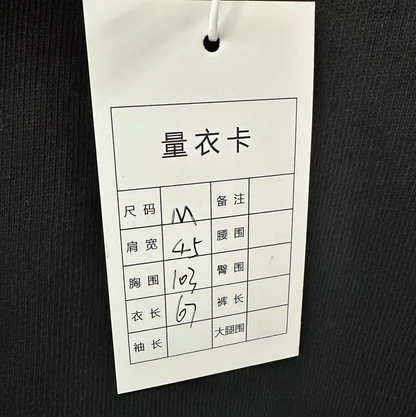 量衣卡
尺码 M 备注
肩宽 45 腰围
胸围 103 臀围
衣长 67 裤长
袖长 大腿围